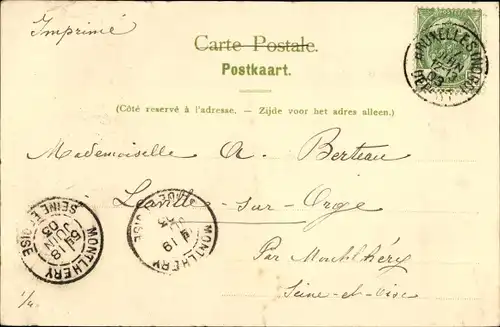 Imprimé
Carte Postale.
Postkaart.
(Côté reservé à l'adresse. - Zijde voor het adres alleen.)
BRUXELLES (NORD)
JUIN
03
Mademoiselle A. Berteau
sur-Orge
Par Montlhéry
Seine-et-Oise
MONTLHERY
SEINE ET OISE
18
JUIN
03
MONTLHERY
19